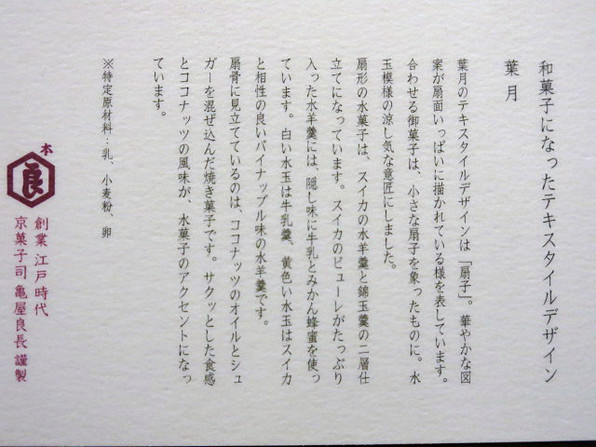 和菓子になったテキスタイルデザイン
葉月
葉月のテキスタイルデザインは「扇子」。華やかな図
案が扇面いっぱいに描かれている様を表しています。
合わせる御菓子は、小さな扇子を象ったものに。水
玉模様の涼し気な意匠にしました。
扇形の水菓子は、スイカの水羊羹と錦玉羹の二層仕
立てになっています。スイカのピューレがたっぷり
入った水羊羹には、隠し味に牛乳とみかん蜂蜜を使っ
ています。白い水玉は牛乳羹、黄色い水玉はスイカ
と相性の良いパイナップル味の水羊羹です。
扇骨に見立てているのは、ココナッツのオイルとシュ
ガーを混ぜ込んだ焼き菓子です。サクッとした食感
とココナッツの風味が、水菓子のアクセントになっ
ています。
※特定原材料：乳、小麦粉、卵
本
良
創業 江戸時代
京菓子司 亀屋良長 謹製